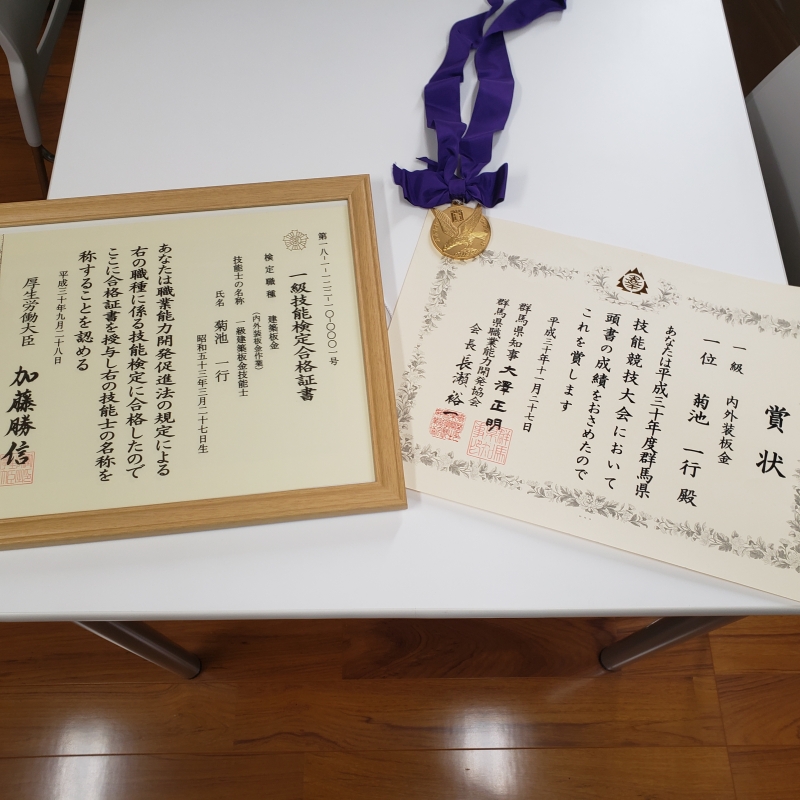 第一八-一-一二二-一〇-〇〇〇一号
一級技能検定合格証書
検定職種 建築板金
(内外装板金作業)
技能士の名称 一級建築板金技能士
氏名 菊池 一行
昭和五十三年三月二十七日生
あなたは職業能力開発促進法の規定による
右の職種に係る技能検定に合格したので
ここに合格証書を授与し右の技能士の名称を
称することを認める
平成三十年九月二十八日
厚生労働大臣 加藤勝信
賞状
一級 内外装板金
一位 菊池 一行 殿
あなたは平成三十年度群馬県
技能競技大会において
頭書の成績をおさめたので
これを賞します
平成三十年十一月二十七日
群馬県知事 大澤正明
群馬県職業能力開発協会
会長 長瀬 裕一